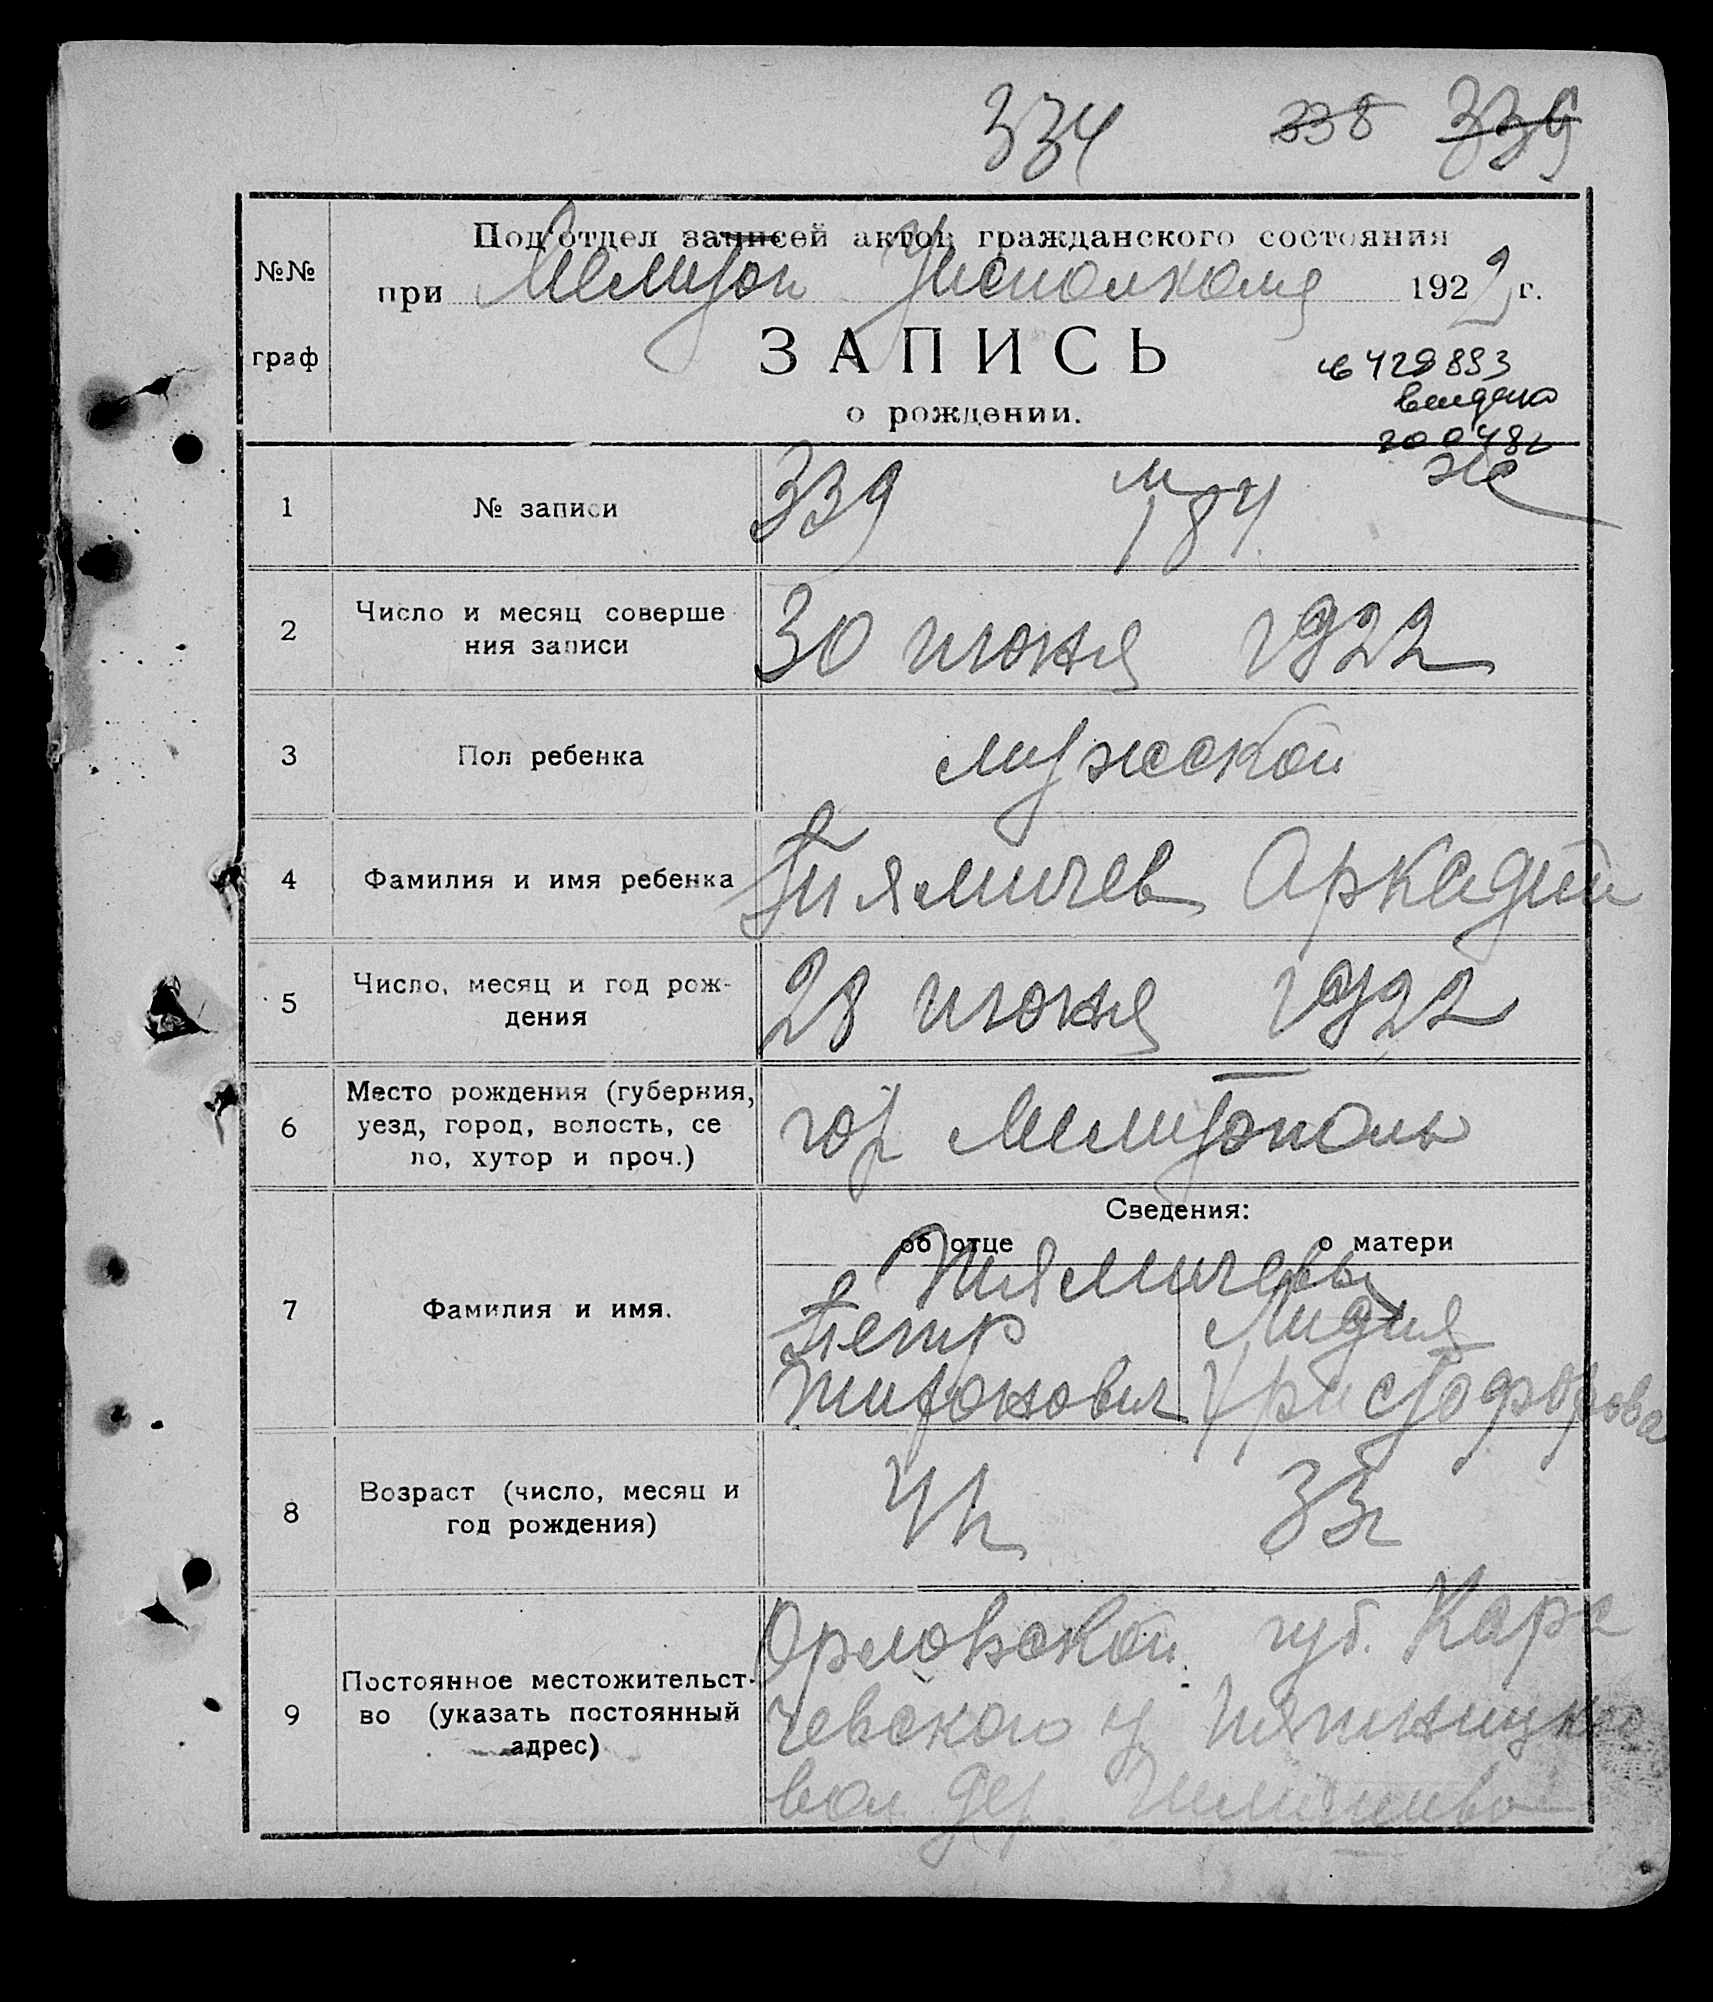 334 338 339
Под'отдел записей актов гражданского состояния
№№
при Мелитоп Уисполкома 1922 г.
граф
ЗАПИСЬ
429883
выдано
о рождении.
1 № записи 339 м 184
2 Число и месяц соверше
ния записи
30 июня 1922
3 Пол ребенка мужской
4 Фамилия и имя ребенка Тиямичев Аркадий
5 Число, месяц и год рож-
дения
28 июня 1922
6 Место рождения (губерния,
уезд, город, волость, се
ло, хутор и проч.)
гор Мелитополь
Сведения:
об отце о матери
7 Фамилия и имя.
Тиямичевы
Петр Лидия
Христофорова
8 Возраст (число, месяц и
год рождения)
33г
9 Постоянное местожительст-
во (указать постоянный
адрес)
Орловской губ. Кара
чевского у
вол дер